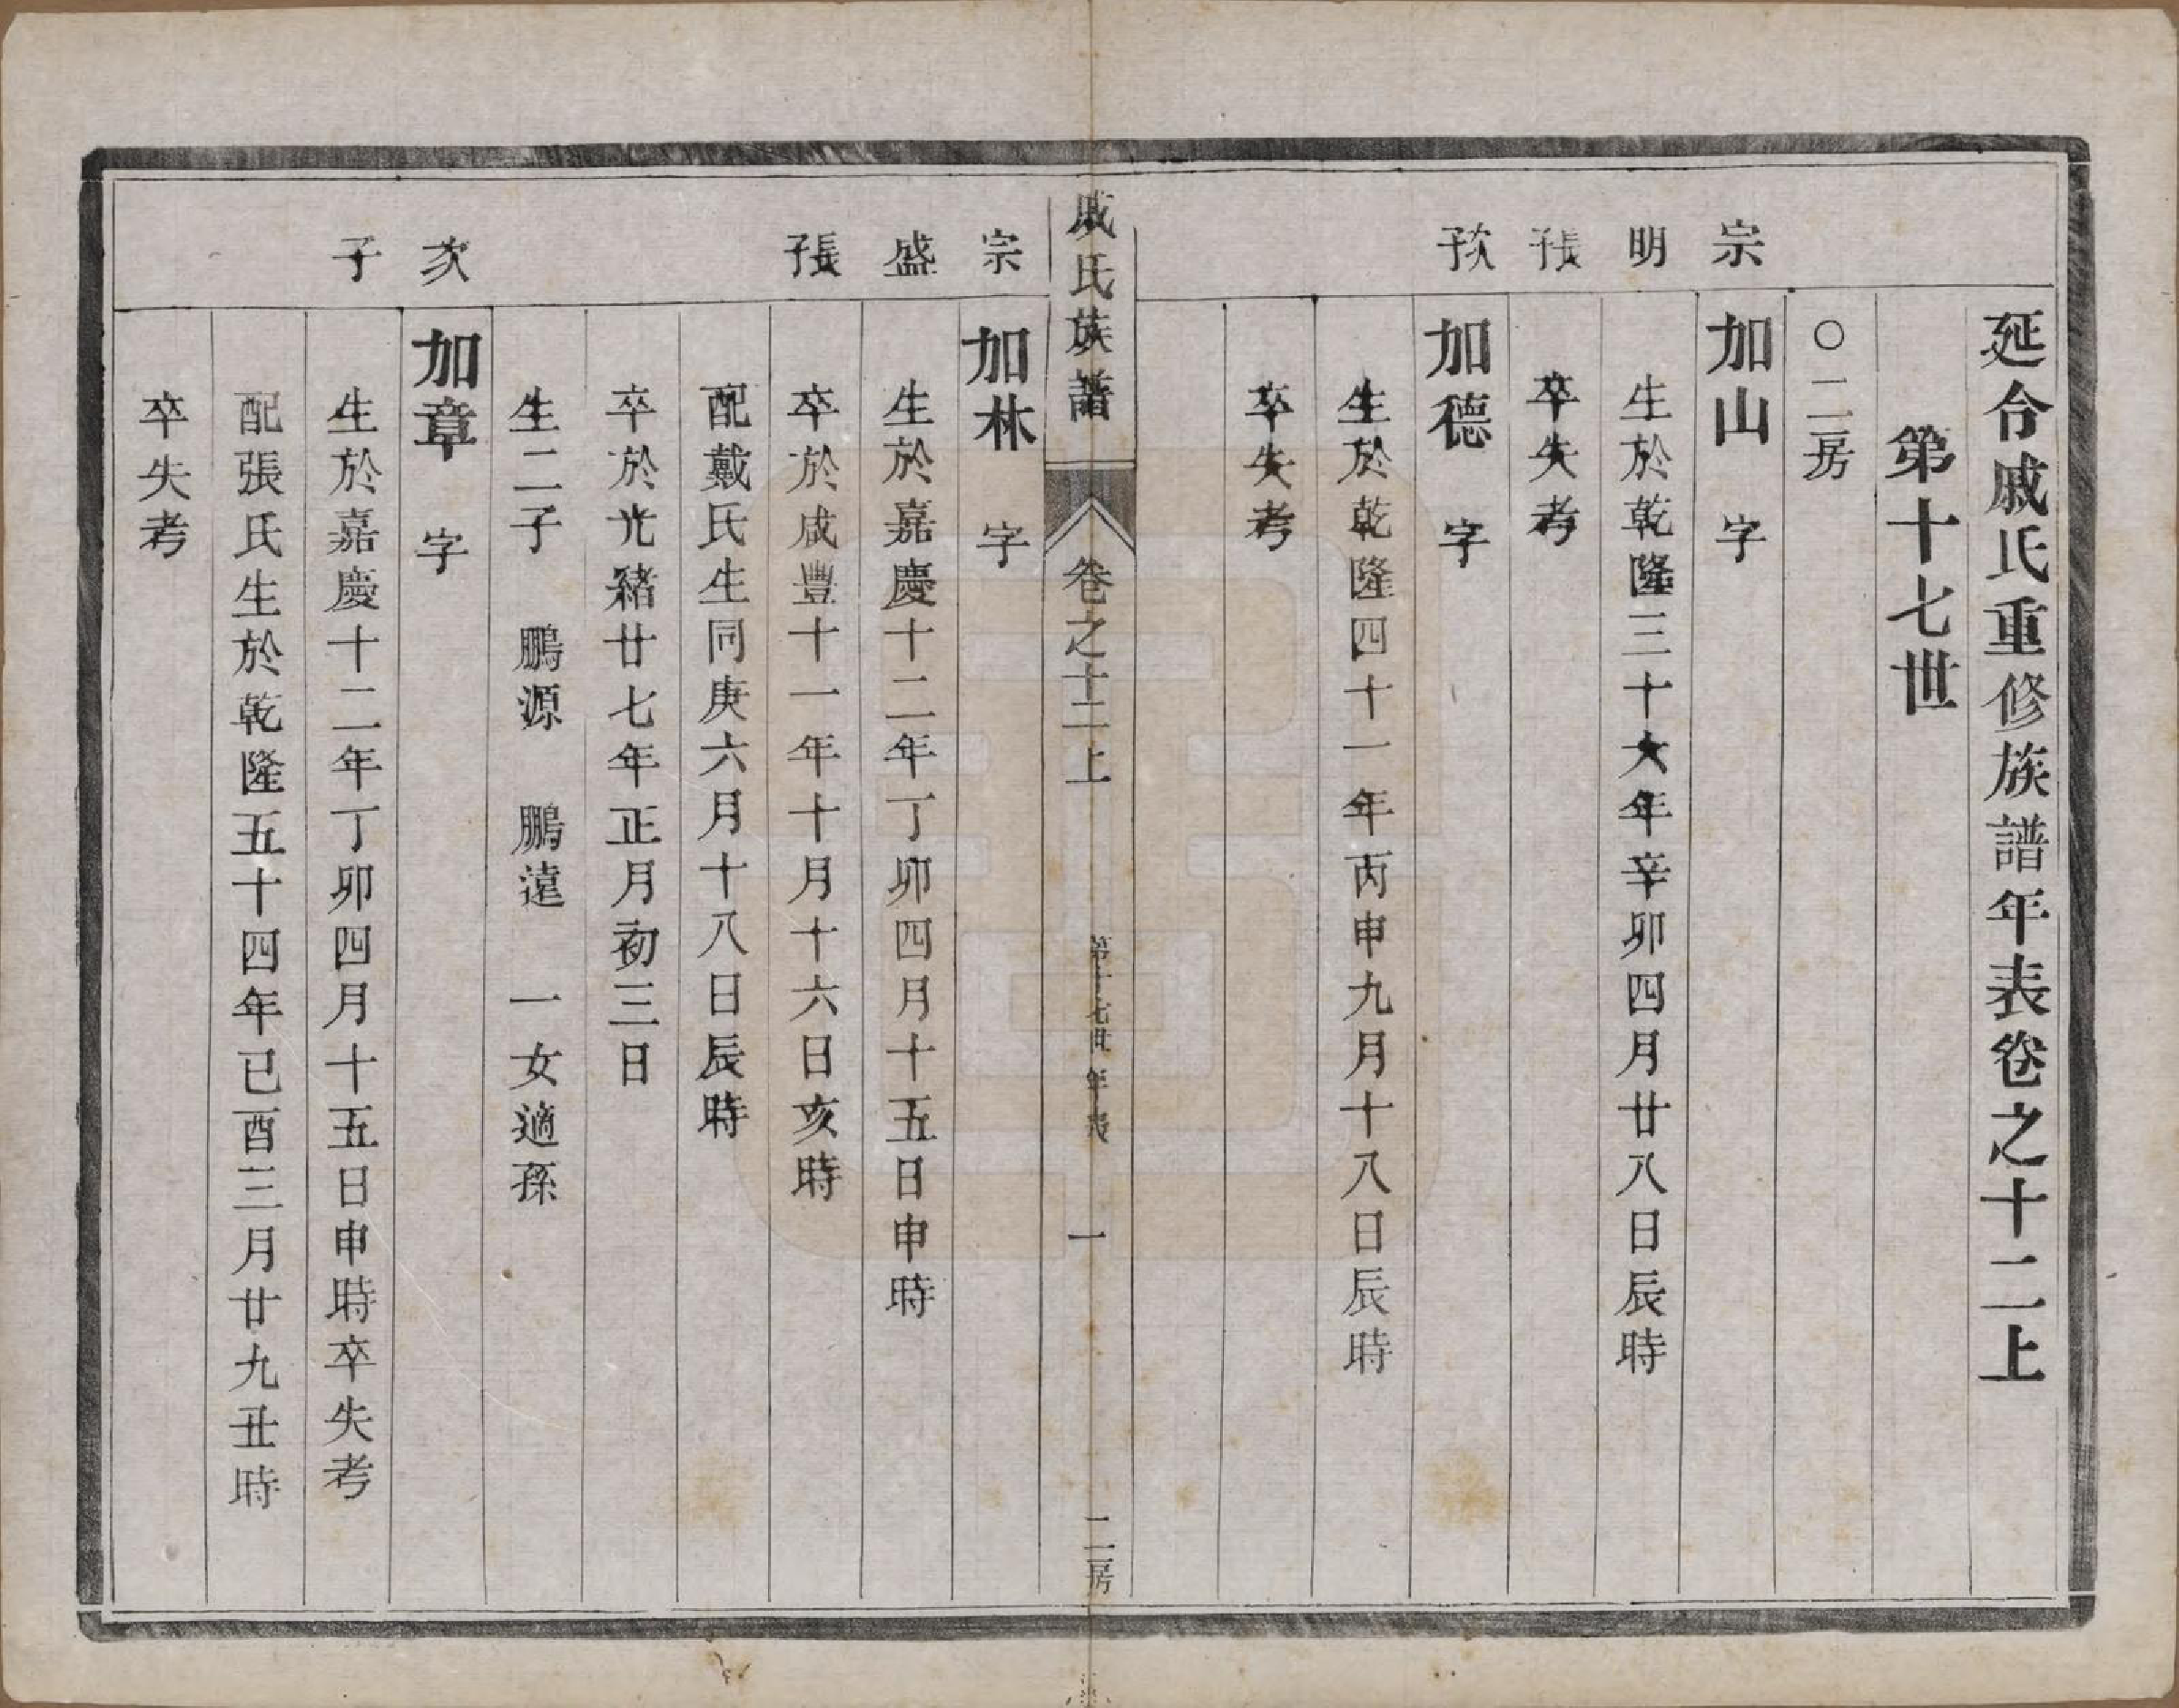 延令戚氏重修族譜年表卷之十二上
第十七世
○二房
宗明長子
加山 字
生於乾隆三十六年辛卯四月廿八日辰時
卒失考
次子
加德 字
生於乾隆四十一年丙申九月十八日辰時
卒失考
戚氏族譜 卷之十二上 第十七世年表 一 二房
宗盛長子
加林 字
生於嘉慶十二年丁卯四月十五日申時
卒於咸豐十一年十月十六日亥時
配戴氏生同庚六月十八日辰時
卒於光緒廿七年正月初三日
生二子 鵬源 鵬遠 一女適孫
次子
加章 字
生於嘉慶十二年丁卯四月十五日申時卒失考
配張氏生於乾隆五十四年己酉三月廿九丑時
卒失考